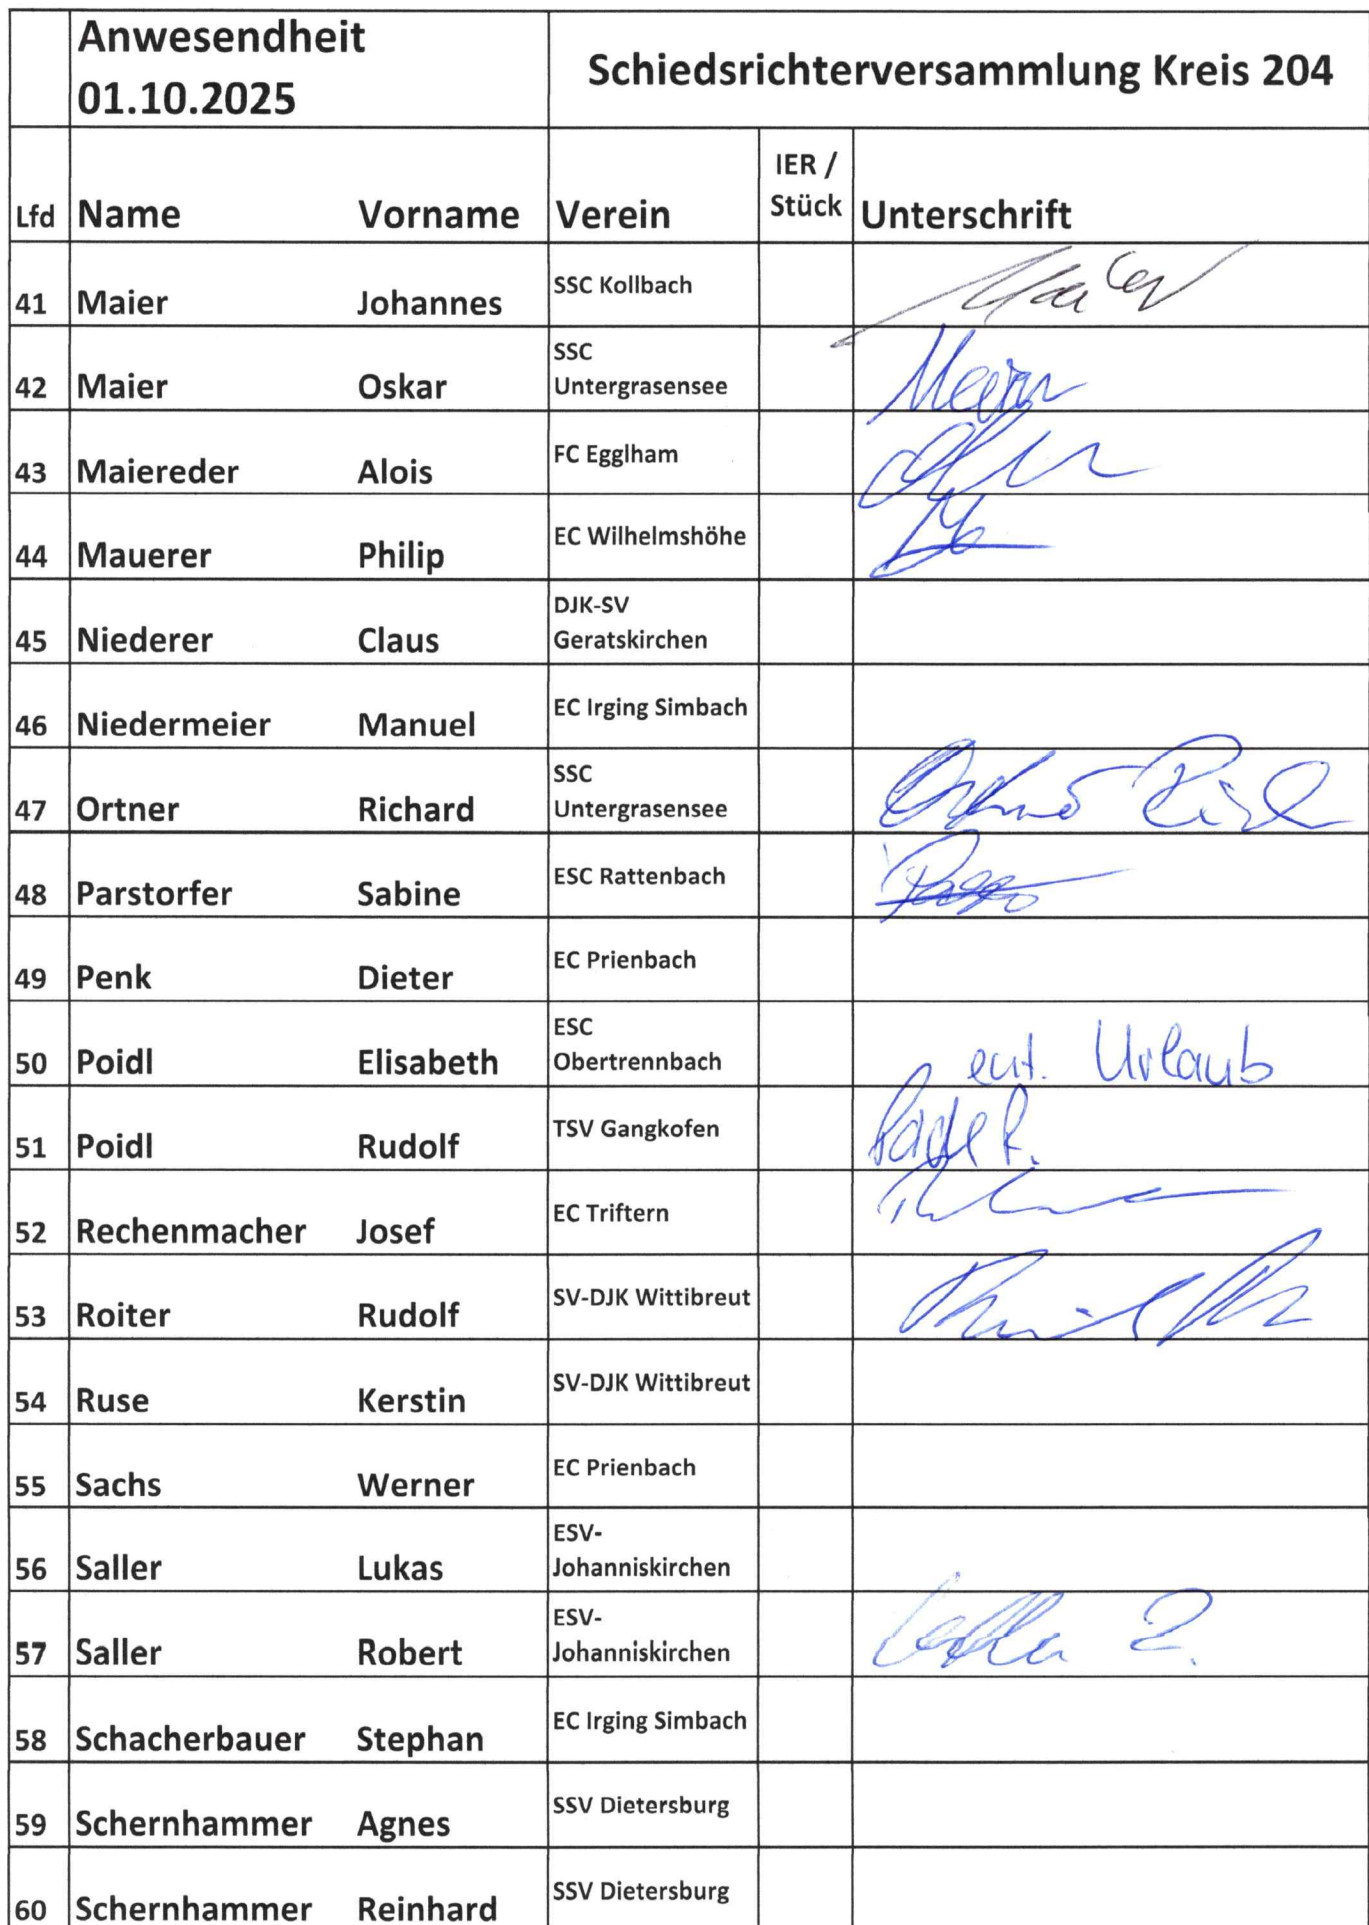 Anwesendheit
01.10.2025
Schiedsrichterversammlung Kreis 204
Lfd Name Vorname Verein IER / Stück Unterschrift
41 Maier Johannes SSC Kollbach Maier
42 Maier Oskar SSC Untergrasensee
43 Maiereder Alois FC Egglham
44 Mauerer Philip EC Wilhelmshöhe
45 Niederer Claus DJK-SV Geratskirchen
46 Niedermeier Manuel EC Irging Simbach
47 Ortner Richard SSC Untergrasensee
48 Parstorfer Sabine ESC Rattenbach
49 Penk Dieter EC Prienbach
50 Poidl Elisabeth ESC Obertrennbach ent. Urlaub
51 Poidl Rudolf TSV Gangkofen
52 Rechenmacher Josef EC Triftern
53 Roiter Rudolf SV-DJK Wittibreut
54 Ruse Kerstin SV-DJK Wittibreut
55 Sachs Werner EC Prienbach
56 Saller Lukas ESV-Johanniskirchen
57 Saller Robert ESV-Johanniskirchen
58 Schacherbauer Stephan EC Irging Simbach
59 Schernhammer Agnes SSV Dietersburg
60 Schernhammer Reinhard SSV Dietersburg